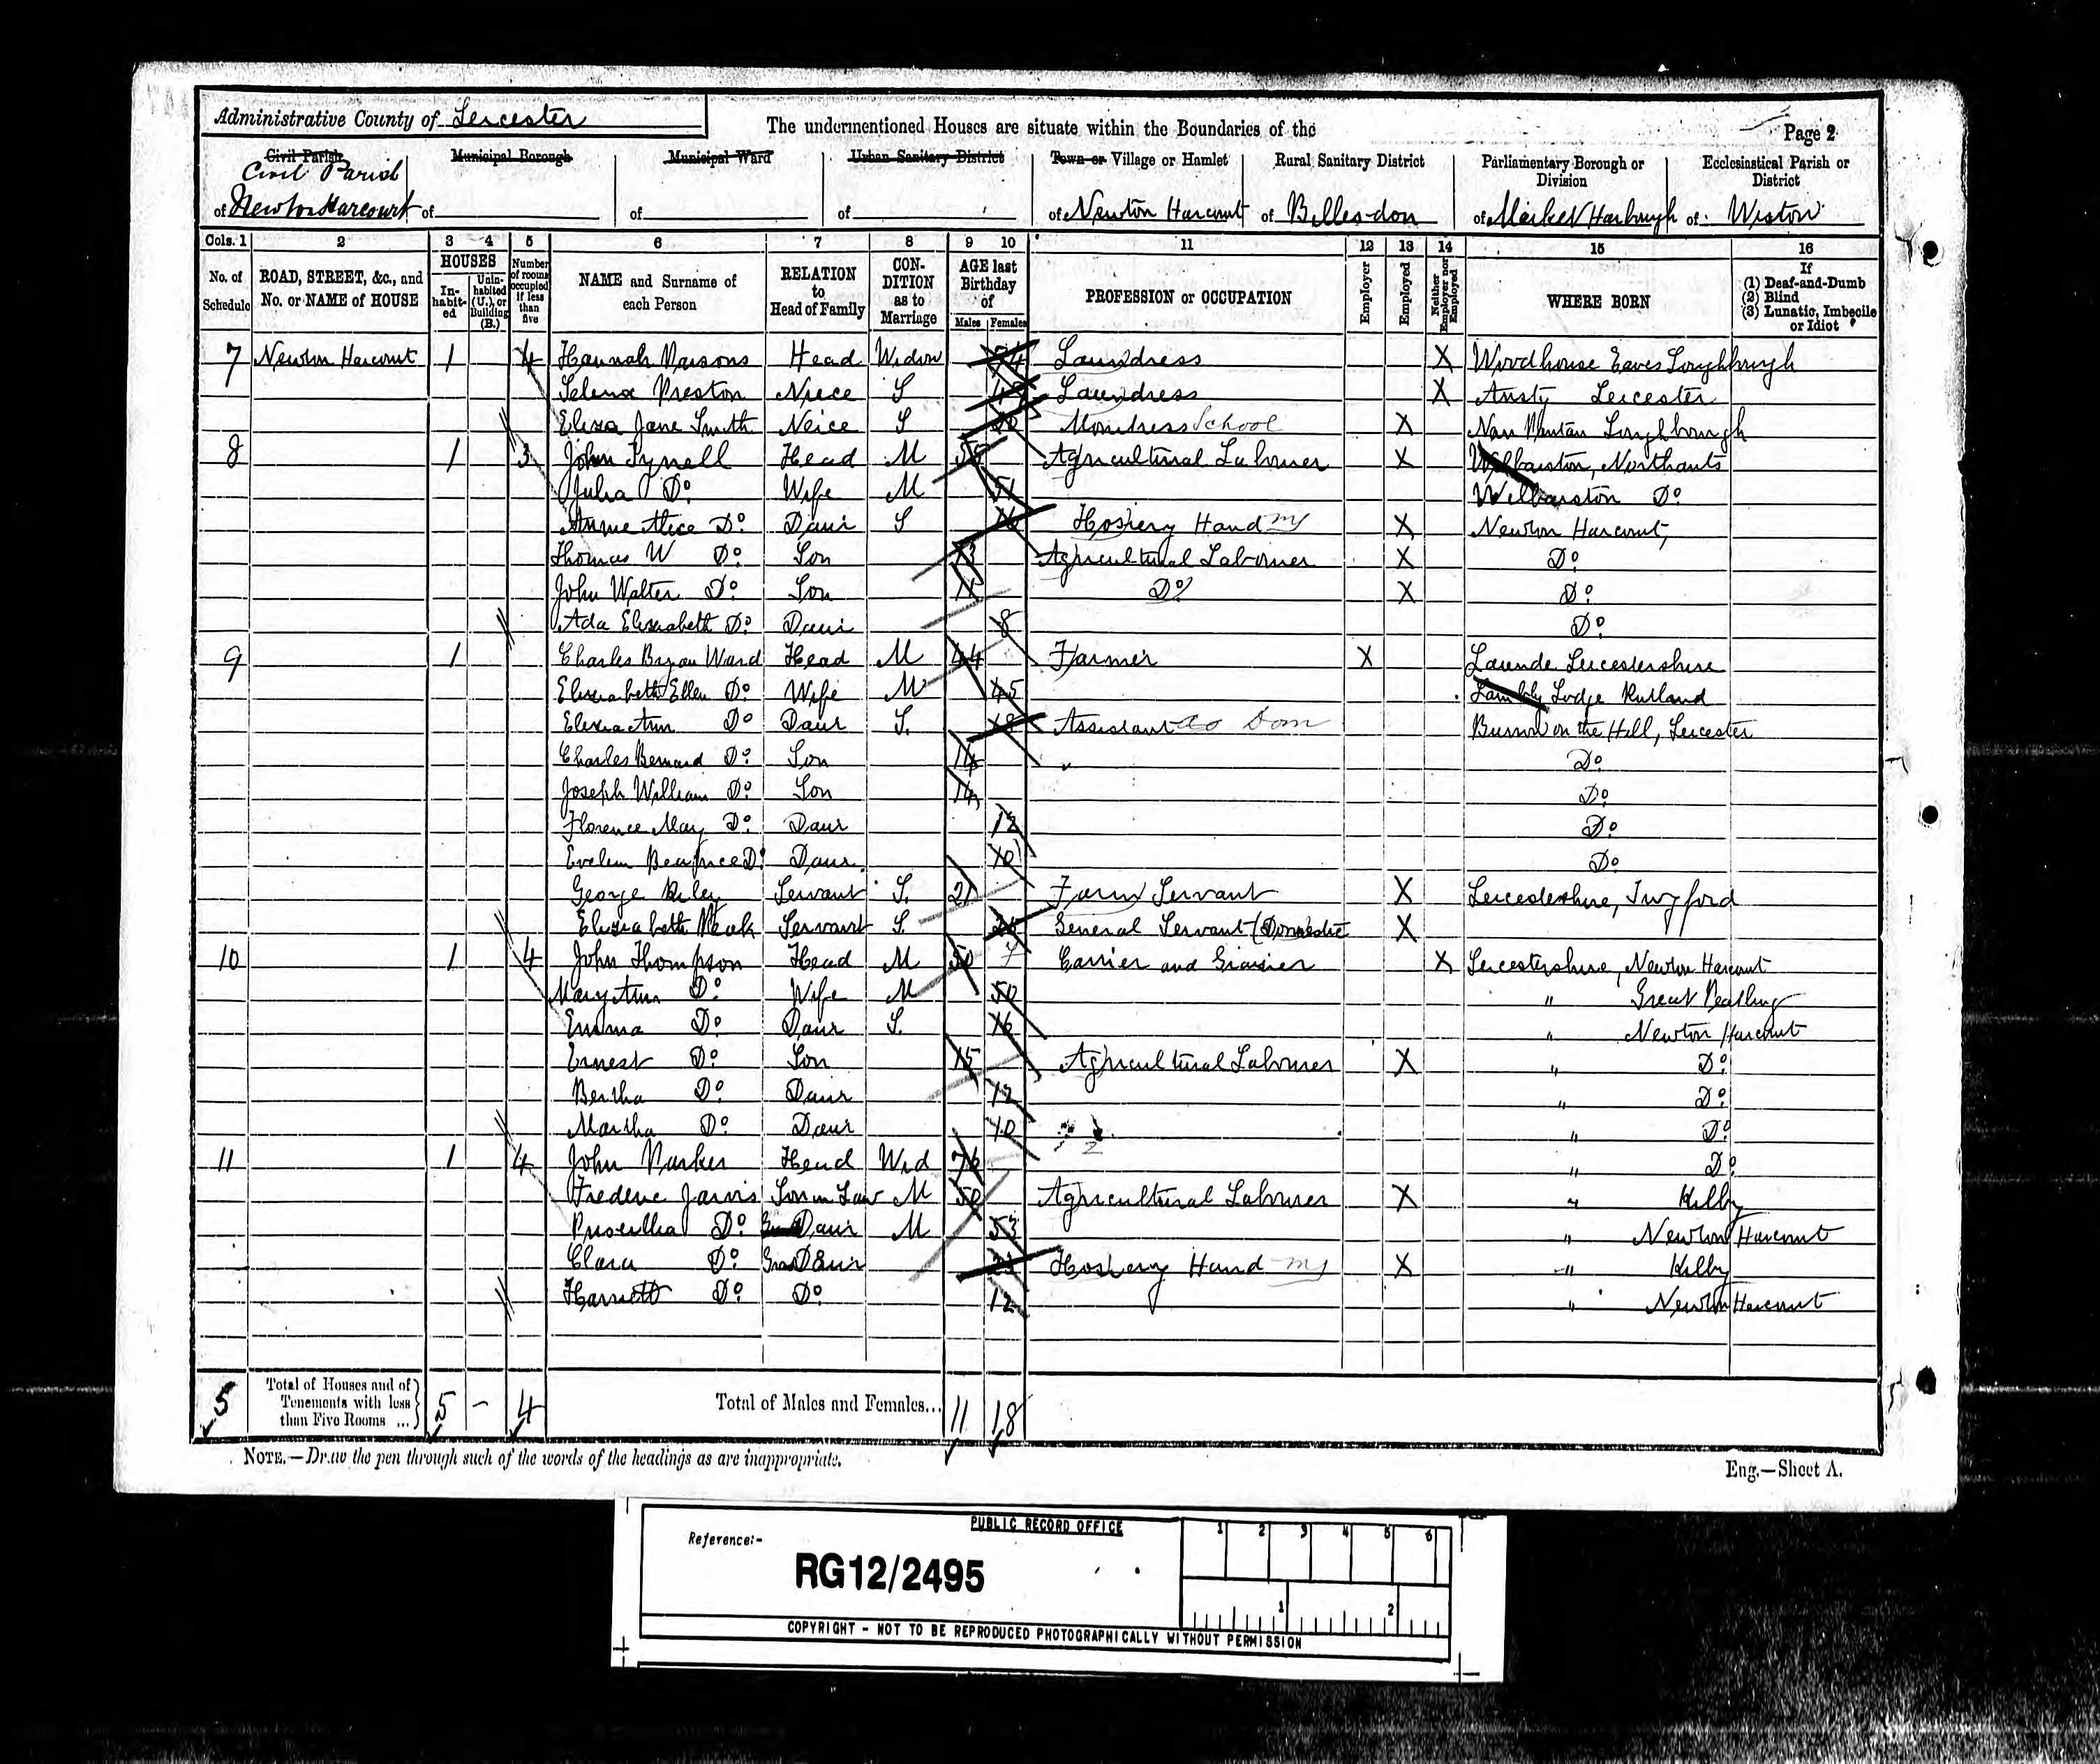 Administrative County of Leicester
The undermentioned Houses are situate within the Boundaries of the
Page 2
Civil Parish
Municipal Borough
Municipal Ward
Urban Sanitary District
Town or Village or Hamlet
Rural Sanitary District
Parliamentary Borough or Division
Ecclesiastical Parish or District
Civil Parish
of Newton Harcourt of
of
of
of Newton Harcourt of Billesdon
of Market Harborough of Wistow
Cols. 1 2 3 4 5 6 7 8 9 10 11 12 13 14 15 16
No. of Schedule
ROAD, STREET, &c., and No. or NAME of HOUSE
HOUSES
In-habit-ed
Unin-habited (U.), or Building (B.)
Number of rooms occupied if less than five
NAME and Surname of each Person
RELATION to Head of Family
CON-DITION as to Marriage
AGE last Birthday of
Males Females
PROFESSION or OCCUPATION
Employer
Employed
Neither Employer nor Employed
WHERE BORN
If
(1) Deaf-and-Dumb
(2) Blind
(3) Lunatic, Imbecile or Idiot
7 Newton Harcourt 1 4 Hannah Parsons Head Widow 54 Laundress X Woodhouse Eaves Loughbrugh
Selena Preston Niece S Laundress X Ansty Leicester
Eliza Jane Smith Neice S Montress School X Nan Pantan Loughbourgh
8 1 3 John Tynell Head M Agricultural Labourer X Wilbarston, Northants
Julia Do Wife M 51 Wilbarston Do
Annie Alice Do Daur S 16 Hosiery Hand X Newton Harcourt,
Thomas W Do Son 13 Agricultural Labourer X Do
John Walter Do Son Do X Do
Ada Elizabeth Do Daur 8 Do
9 1 Charles Bryan Ward Head M 44 Farmer X Launde Leicestershire
Elizabeth Ellen Do Wife M 45 Lodge Rutland
Eliza Ann Do Daur S. 18 Assistant Dom Burrow on the Hill, Leicester
Charles Bernard Do Son Do
Joseph William Do Son 14 Do
Florence May Do Daur 12 Do
Evelin Beatrice Do Daur. 10 Do
George Riley Servant S. 21 Farm Servant X Leicestershire, Twyford
Elizabeth Servant S. General Servant (Domestic X
10 1 4 John Thompson Head M 50 Carrier and Grasier X Leicestershire, Newton Harcourt
Mary Ann Do Wife M 50 " Great Peatling
Emma Do Daur S. 16 " Newton Harcourt
Ernest Do Son 15 Agricultural Labourer X " Do
Bertha Do Daur 12 " Do
Martha Do Daur 10 " Do
11 1 4 John Parker Head Wid 76 " Do
Frederic Jarvis Son in Law M 50 Agricultural Labourer X " Kilby
Priscilla Do Daur M 53 " Newton Harcourt
Clara Do GranDaur Hosiery Hand X " Kilby
Harriett Do Do 12 " Newton Harcourt
5 Total of Houses and of Tenements with less than Five Rooms ... 5 - 4 Total of Males and Females... 11 18
NOTE.—Draw the pen through such of the words of the headings as are inappropriate.
Eng.—Sheet A.
PUBLIC RECORD OFFICE
Reference:-
RG12/2495
1 2 3 4 5 6
1 2
COPYRIGHT - NOT TO BE REPRODUCED PHOTOGRAPHICALLY WITHOUT PERMISSION